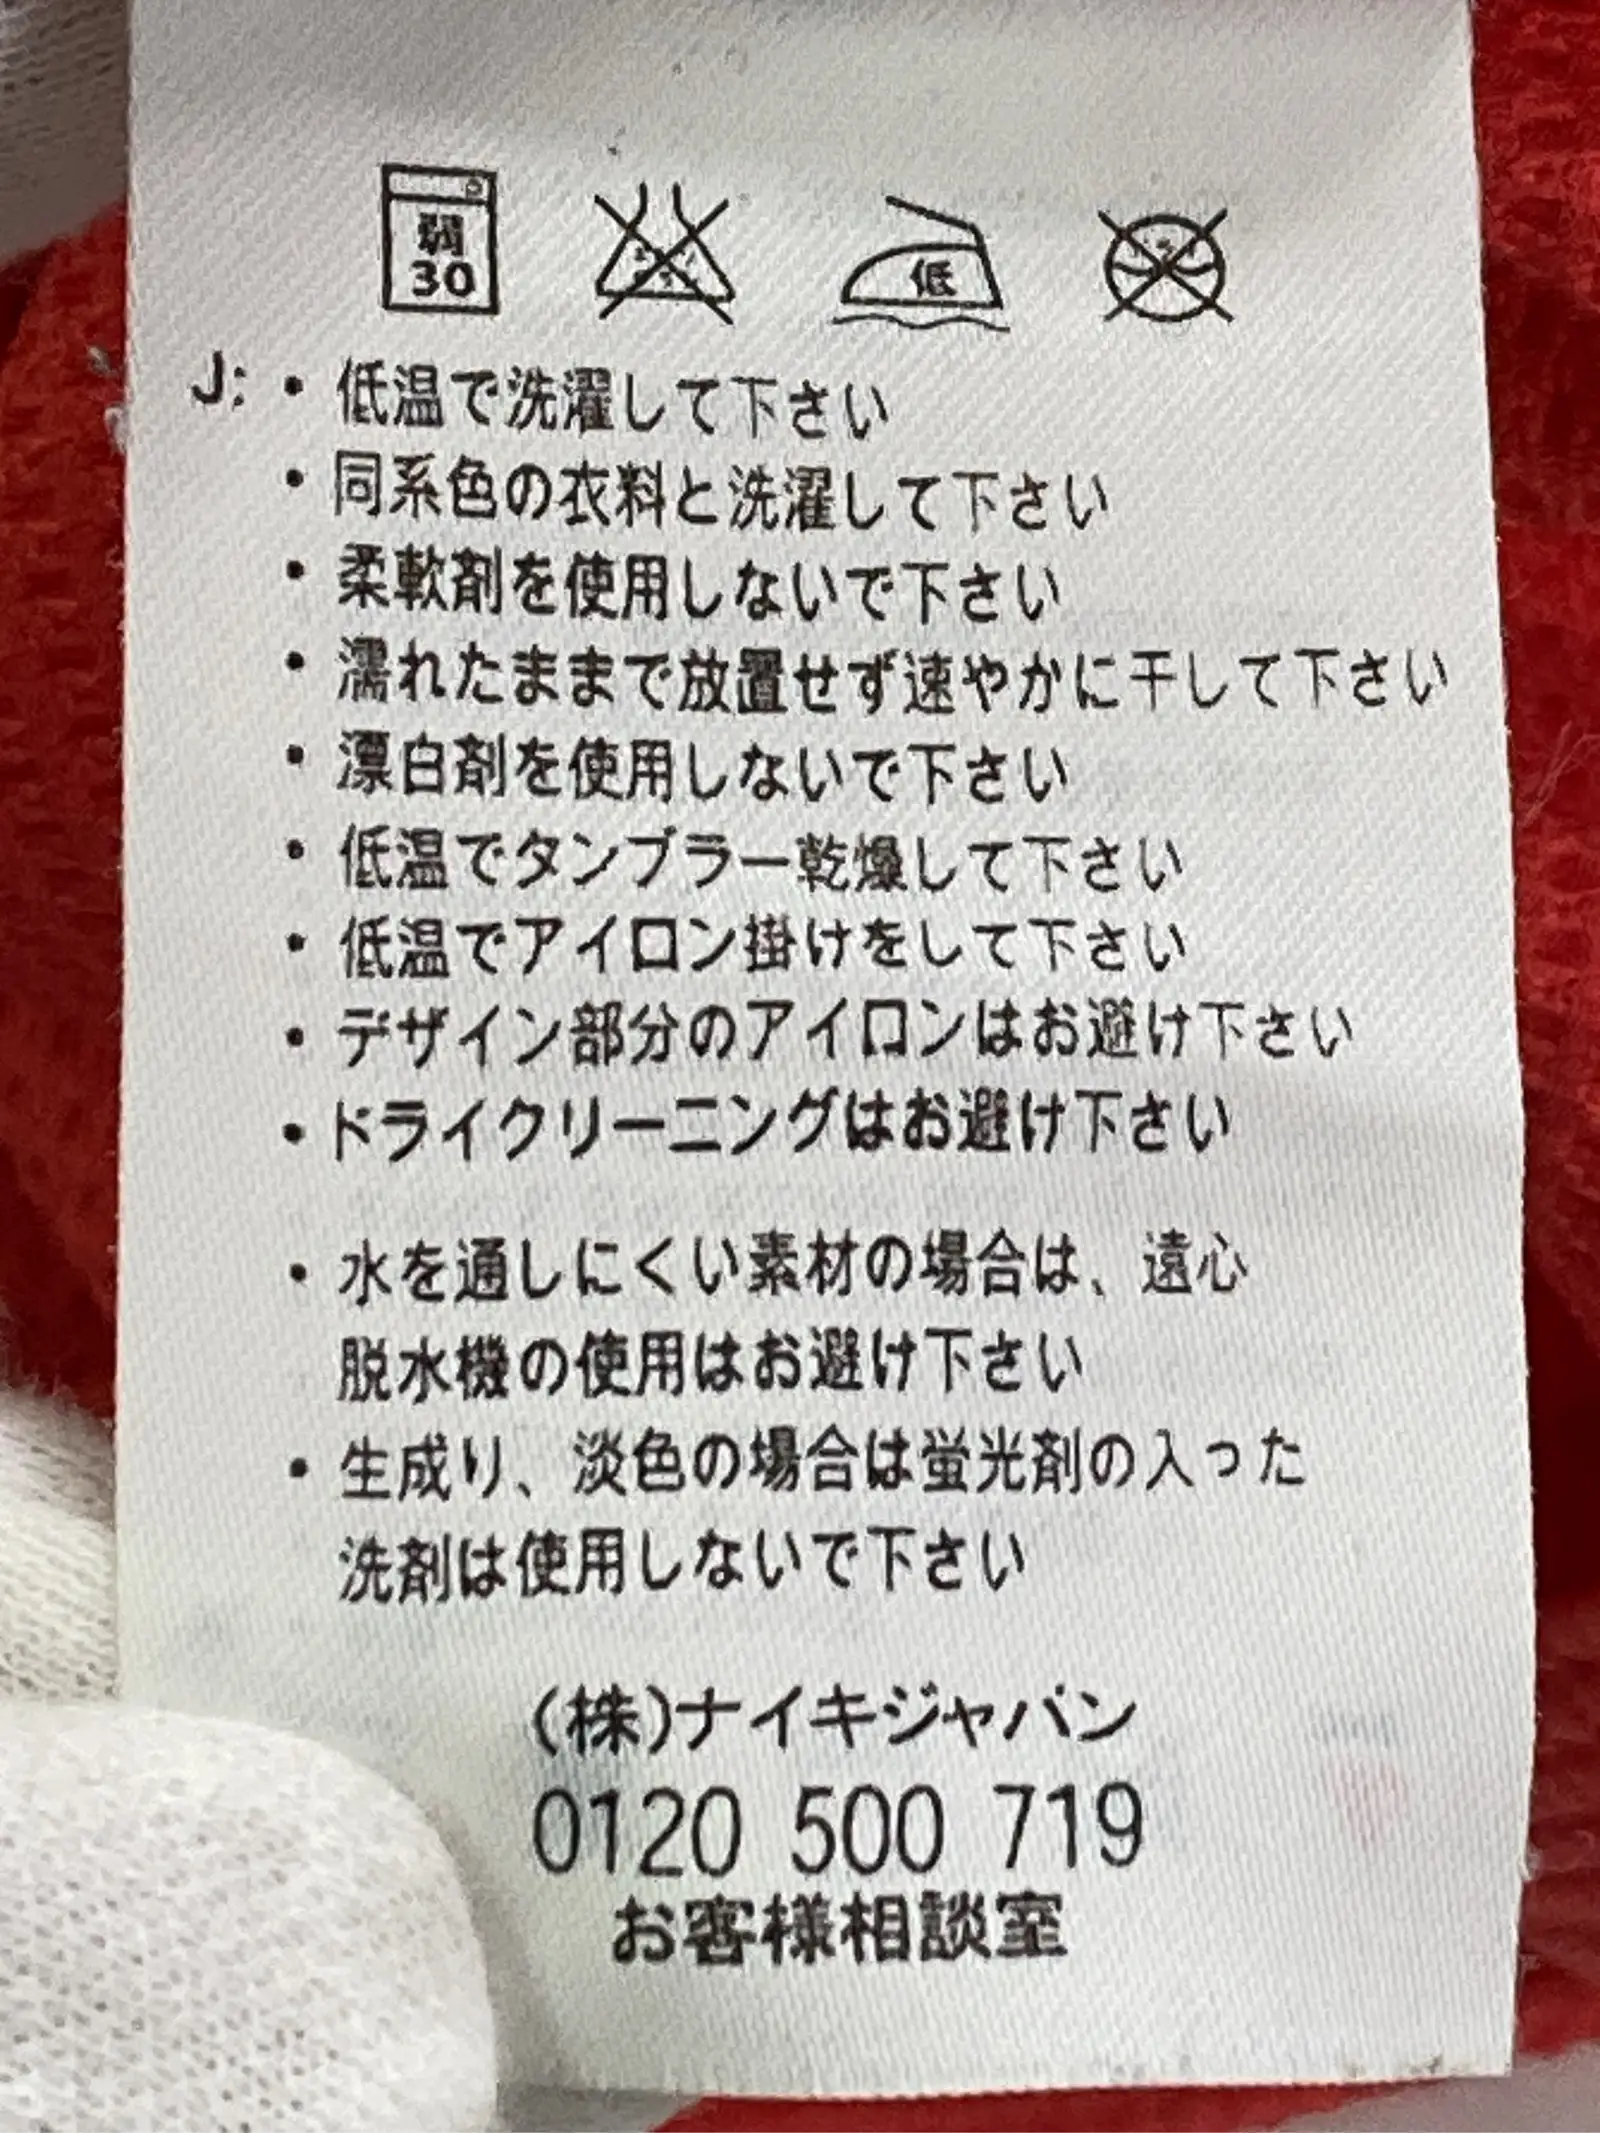 弱
30
低
J: ・低温で洗濯して下さい
・同系色の衣料と洗濯して下さい
・柔軟剤を使用しないで下さい
・濡れたままで放置せず速やかに干して下さい
・漂白剤を使用しないで下さい
・低温でタンブラー乾燥して下さい
・低温でアイロン掛けをして下さい
・デザイン部分のアイロンはお避け下さい
・ドライクリーニングはお避け下さい
・水を通しにくい素材の場合は、遠心
脱水機の使用はお避け下さい
・生成り、淡色の場合は蛍光剤の入った
洗剤は使用しないで下さい
(株)ナイキジャパン
0120 500 719
お客様相談室